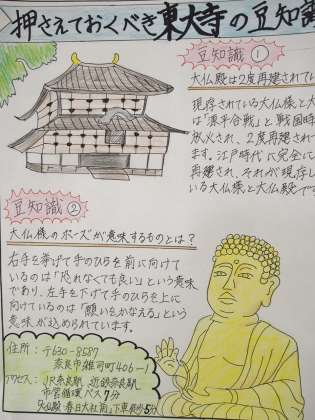 押さえておくべき東大寺の豆知識
豆知識①
大仏殿は2度再建されてい
現存されている大仏様と大
は「源平合戦」と戦国時
放火され、2度再建されて
ます。江戸時代に完全に
再建され、それが現存し
いる大仏様と大仏殿です
豆知識②
大仏様のポーズが意味するものとは?
右手を挙げて手のひらを前に向けて
いるのは「恐れなくても良い」という意味
であり、左手を下げて手のひらを上に
向けているのは「願いをかなえる」という
意味が込められています。
住所:〒630-8587
奈良市雑司町406-1
アクセス:JR奈良駅、近鉄奈良駅
市営循環バス7分
大仏殿春日大社前下車徒歩5分